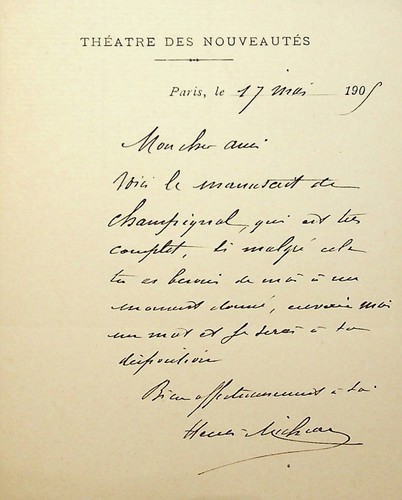 THÉATRE DES NOUVEAUTÉS
Paris, le 17 mai 1905
Mon cher ami
Voici le manuscrit de
Champignol, qui est très
complet, si malgré cela
tu as besoin de moi à un
moment donné, envoie moi
un mot et je serai à ta
disposition
Bien affectueusement à toi
Henri